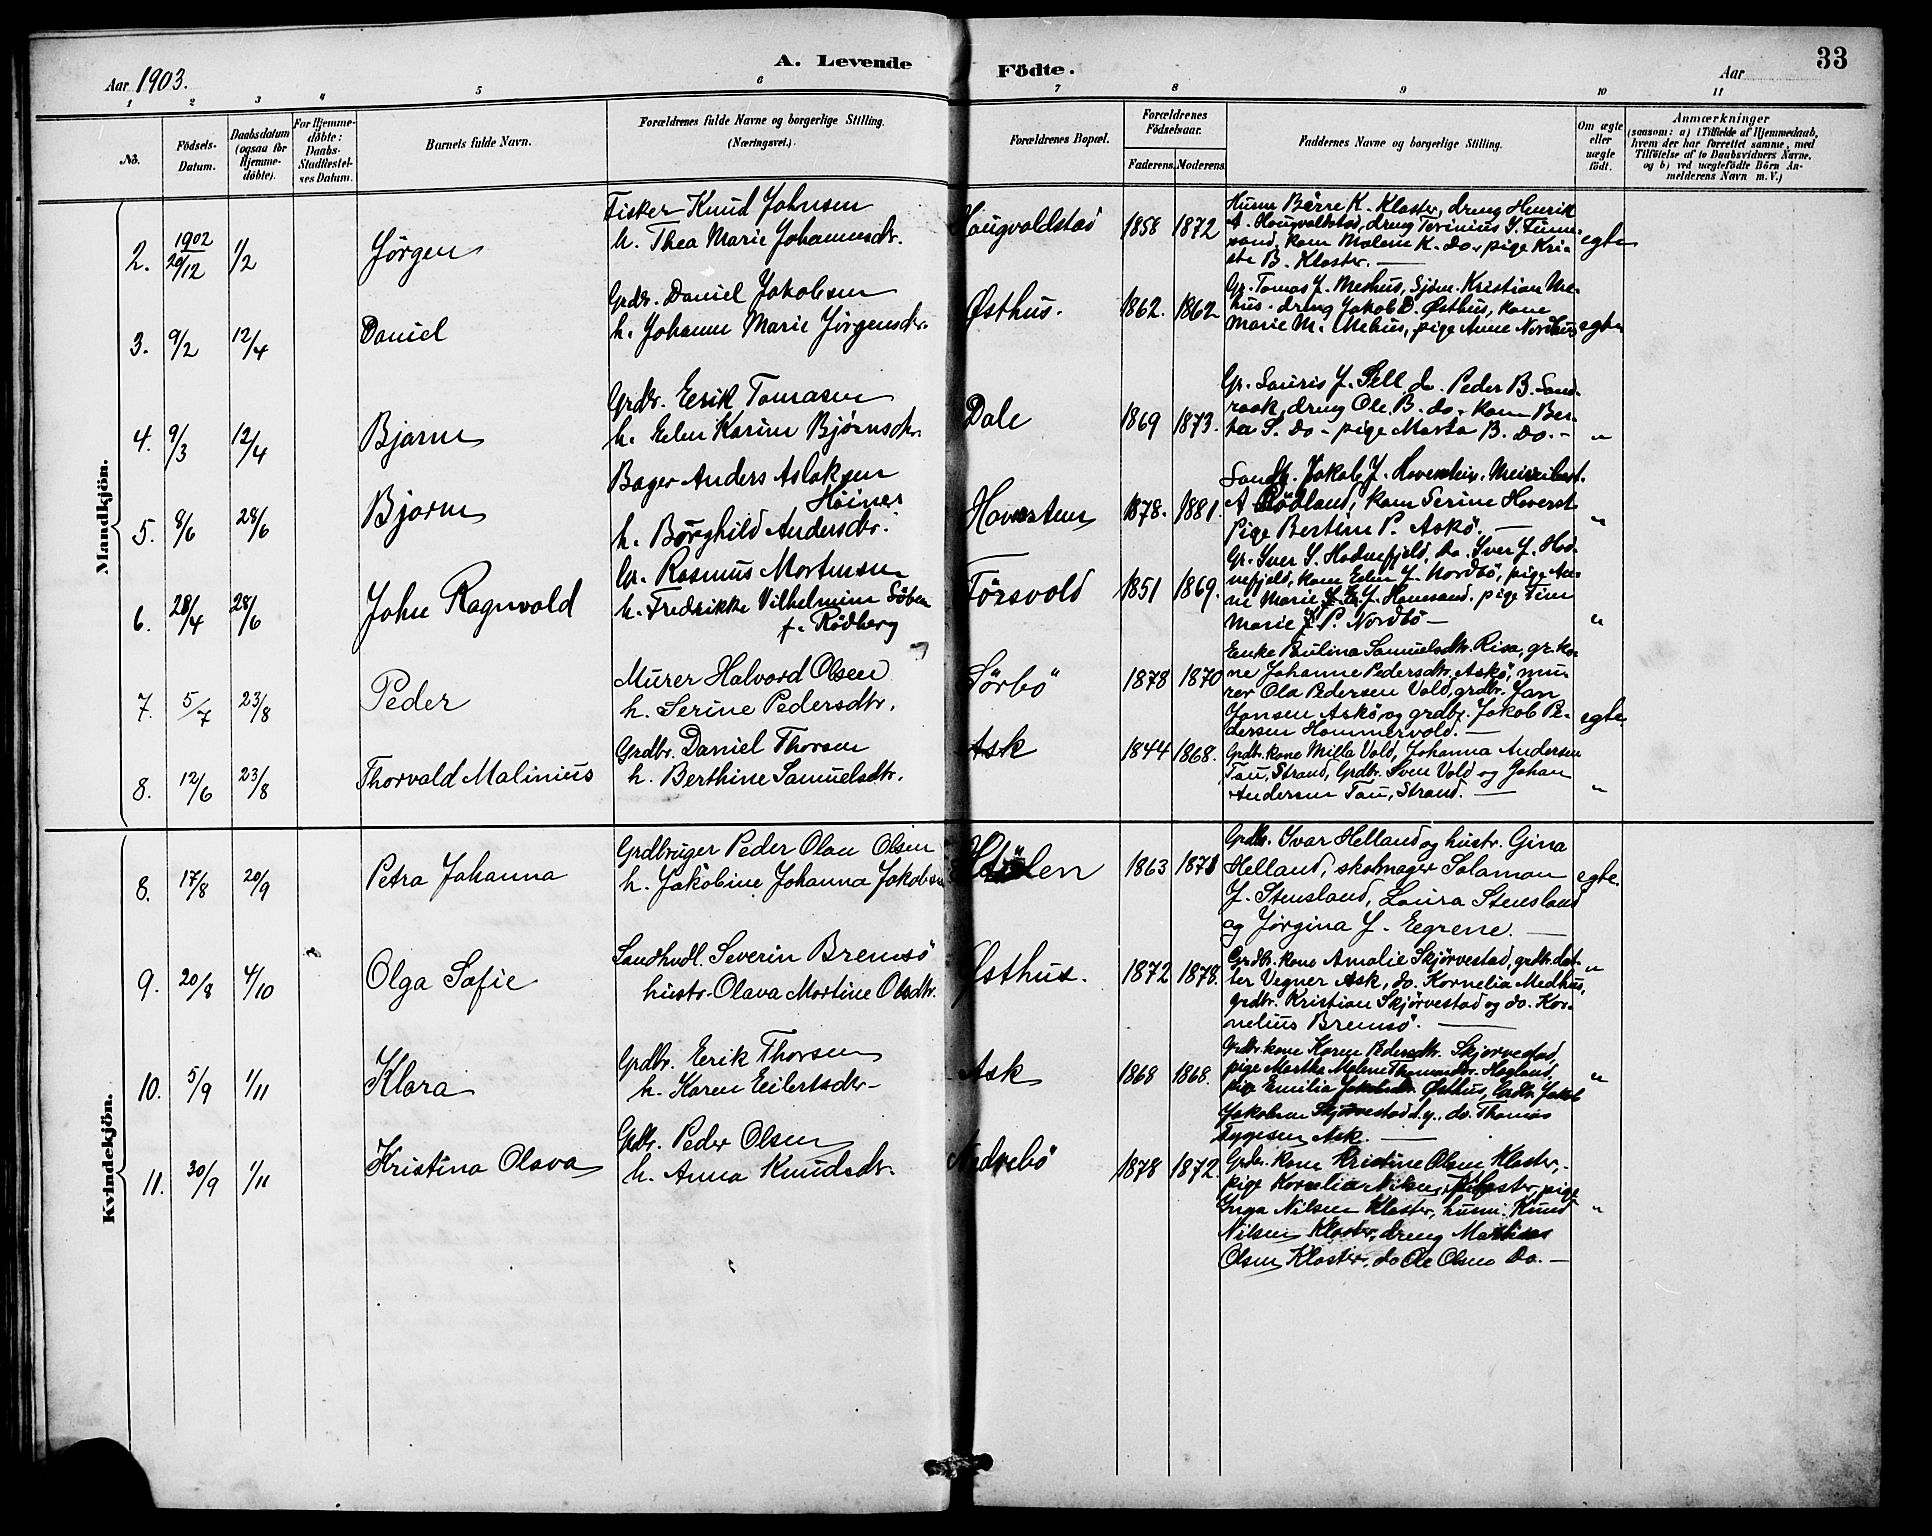 A. Levende
Födte.
33
Aar 1903.
Aar
1 2 3 4 5 6 7 8 9 10 11
No.
Födsels-
Datum.
Daabsdatum
(ogsaa for
Hjemme-
döbte).
For Hjemme-
döbte:
Daabs-
Stadfestel-
ses Datum.
Barnets fulde Navn.
Forældrenes fulde Navne og borgerlige Stilling.
(Næringsvei.)
Forældrenes Bopæl.
Forældrenes
Födselsaar.
Faderens. Moderens.
Faddernes Navne og borgerlige Stilling.
Om ægte
eller
uægte
födt.
Anmærkninger
(saasom: a) i Tilfælde af Hjemmedaab,
hvem der har forrettet samme, med
Tilföielse af to Daabsvidners Navne,
og b) ved uægtefödte Börn An-
melderens Navn m. V.)
Mandkjön.
2. 1902 29/12 1/2 Jørgen
Fisker Knud Johnsen
h. Thea Marie Johannesdr.
Haugvaldstad 1858 1872
Husm Børre K. Kloster, dreng Henrik
A. Haugvaldstad, dreng Torinius S. Finne-
sand, kone Malene K. do., pige Kri-
ste B. Kloster. —
egte
3. 9/2 12/4 Daniel
Grdbr. Daniel Jakobsen
h. Johanne Marie Jørgensdr.
Østhus. 1862. 1862
Gr. Tomas J. Meshus, Sjøm. Kristian Me-
hus. dreng Jakob D. Østhus, kone
Marie M. Mehus, pige Anne Nordhus
egte
4. 9/3 12/4 Bjarne
Grdbr. Erik Tomasen
h. Elen Karine Bjørnsdr.
Dale 1869 1873.
Gr. Lauris J. Sell do. Peder B. Sand-
raak, dreng Ole B. do. kone Ber-
ta S. do - pige Marta B. do. -
"
5. 8/6 28/6 Bjarne
Bager Anders Aslaksen
Höines
h. Borghild Andersdtr.
Haversten 1878. 1881.
Landh. Jakob J. Haversten.
A Rödland, kone Serine Haverst
Pige Bertine P. Askö. —
"
6. 28/4 28/6 John Ragnvald
Gr. Rasmus Mortensen
h. Fredrikke Vilhelmine
f. Rödberg
Førsvold 1851 1869.
Gr. Iver S. Hodnefjeld, Do. Iver J. Hod-
nefjeld, kone Elen J. Nordbö, pige An-
ne Marie J. Hanesand. pige Tine
Marie J. P. Nordbö —
"
7. 5/7 23/8 Peder
Murer Halvard Olsen
h. Serine Pedersdtr.
Sörbö 1878 1870
Enke Paulina Samuelsdtr. Risa, gr. ko-
ne Johanne Pedersdtr. Askö, mu-
rer Ola Pedersen Vold, grdbr. Jan
Jansen Askö, og grdbr. Jakob Pe-
dersen Hommervold. —
egte
8. 12/6 23/8 Thorvald Malinius
Grdbr. Daniel Thorsen
h. Berthine Samuelsdtr.
Ask 1844 1868.
Grdbr. kone Milla Vold, Johanna Andersen
Tau, Strand, Grdbr. Sven Vold og Johan
Andersen Tau, Strand. —
"
Kvindekjön.
8. 17/8 20/9 Petra Johanna
Grdbruger Peder Olau Olsen
h. Jakobine Johanna Jakobsen
1863 1871
Grdbr. Ivar Helland og hustr. Gina
Helland, skomager Salamon
J. Stensland, Laura Stensland
og Jørgina J. Eegrene. —
egte.
9. 20/8 4/10 Olga Sofie
Landhndl. Severin Bremsö
hustr. Olava Martine Olsdtr.
Østhus. 1872 1878.
Grdbr. kone Amalie Skjørvestad, grdbr. dat-
ter Vegner Ask, do. Kornelia Medhus,
grdbr. Kristian Skjørvestad og do. Kor-
nelius Bremsö. —
"
10. 5/9 1/11 Klara
Grdbr. Eerik Thorsen
h. Karen Eilertsdtr.-
Ask 1868 1868.
Grdbr. kone Karen Pedersdtr. Skjørvestad,
pige Martha Malene Hagland,
pige Emilia Jakobsdtr. Østhus, Grdbr. Jakob
Jakobsen Skjørvestad d.y., do. Thomas
Tygesen Ask. —
"
11. 30/9 1/11 Kristina Olava
Grdbr. Peder Olsen
h. Anna Knudsdr.
Nedrebö 1878 1872
Grdbr. kone Kristine Olsen Kloster,
pige Kornelia Nilsen Kloster, pige
Inga Nilsen Kloster, husm. Knud
Nilsen Kloster, dreng Mathias
Olsen Kloster, do Ole Olsen Do. —
"